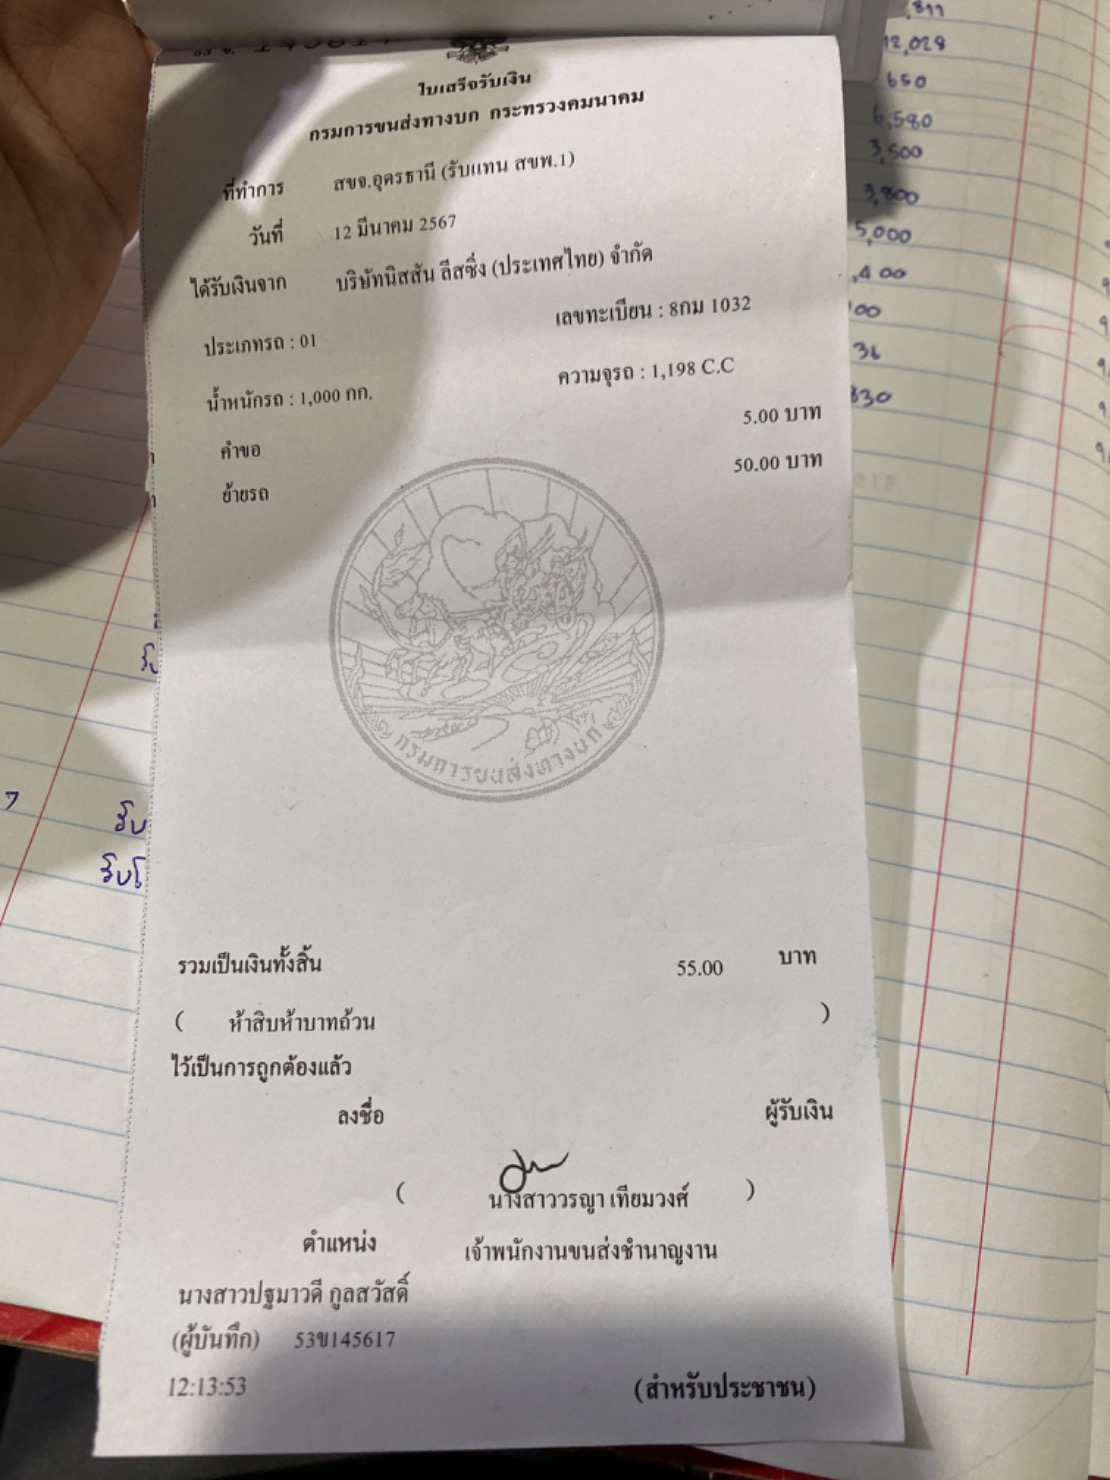 ใบเสร็จรับเงิน
กรมการขนส่งทางบก กระทรวงคมนาคม
ที่ทำการ สขจ.อุดรธานี (รับแทน สขพ.1)
วันที่ 12 มีนาคม 2567
ได้รับเงินจาก บริษัทนิสสัน ลีสซิ่ง (ประเทศไทย) จำกัด
ประเภทรถ : 01 เลขทะเบียน : 8กม 1032
น้ำหนักรถ : 1,000 กก. ความจุรถ : 1,198 C.C
คำขอ 5.00 บาท
ย้ายรถ 50.00 บาท
กรมการขนส่งทางบก
รวมเป็นเงินทั้งสิ้น 55.00 บาท
( ห้าสิบห้าบาทถ้วน )
ไว้เป็นการถูกต้องแล้ว
ลงชื่อ ผู้รับเงิน
( นางสาววรญา เทียมวงศ์ )
ตำแหน่ง เจ้าพนักงานขนส่งชำนาญงาน
นางสาวปฐมาวดี กูลสวัสดิ์
(ผู้บันทึก) 53ข145617
12:13:53 (สำหรับประชาชน)
12,028
650
6,580
3,500
3,800
5,000